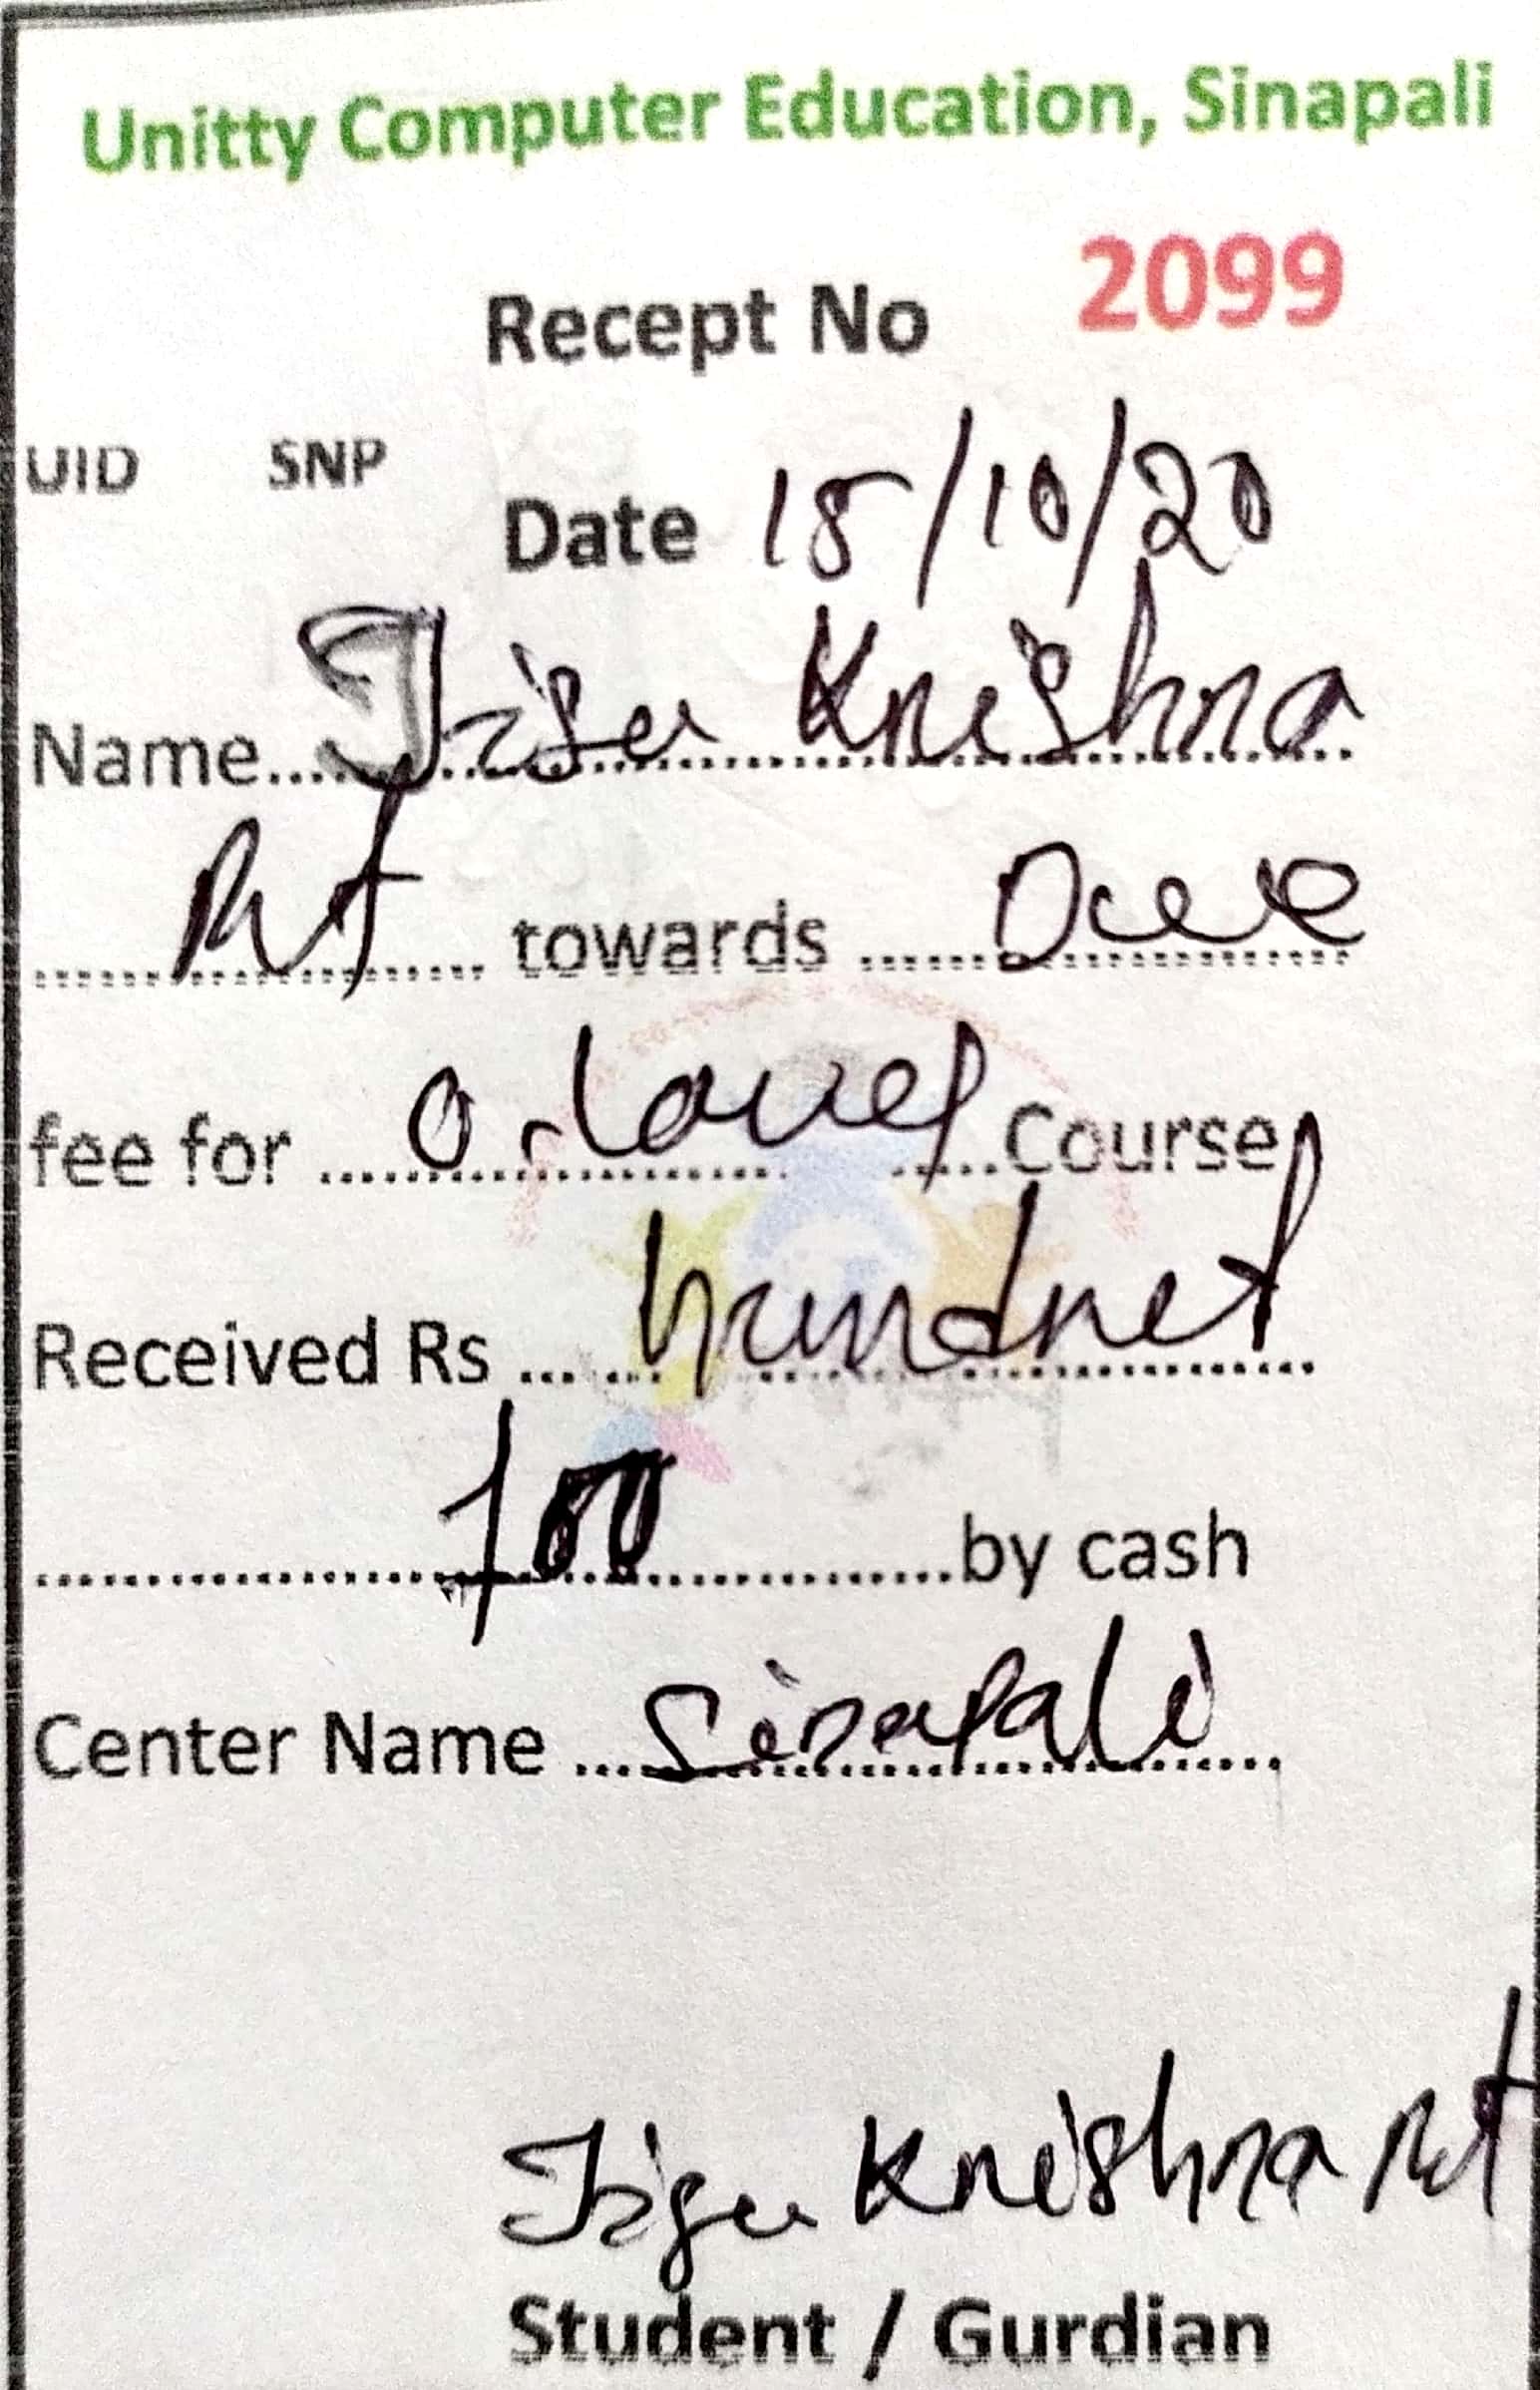 Unitty Computer Education, Sinapali
Recept No 2099
UID SNP
Date 15/10/20
Name.... Krishna
........ towards ......
fee for ....O-lavel.....Course
Received Rs ... hundret
....100....by cash
Center Name ...Sinapali
Krishna
Student / Gurdian